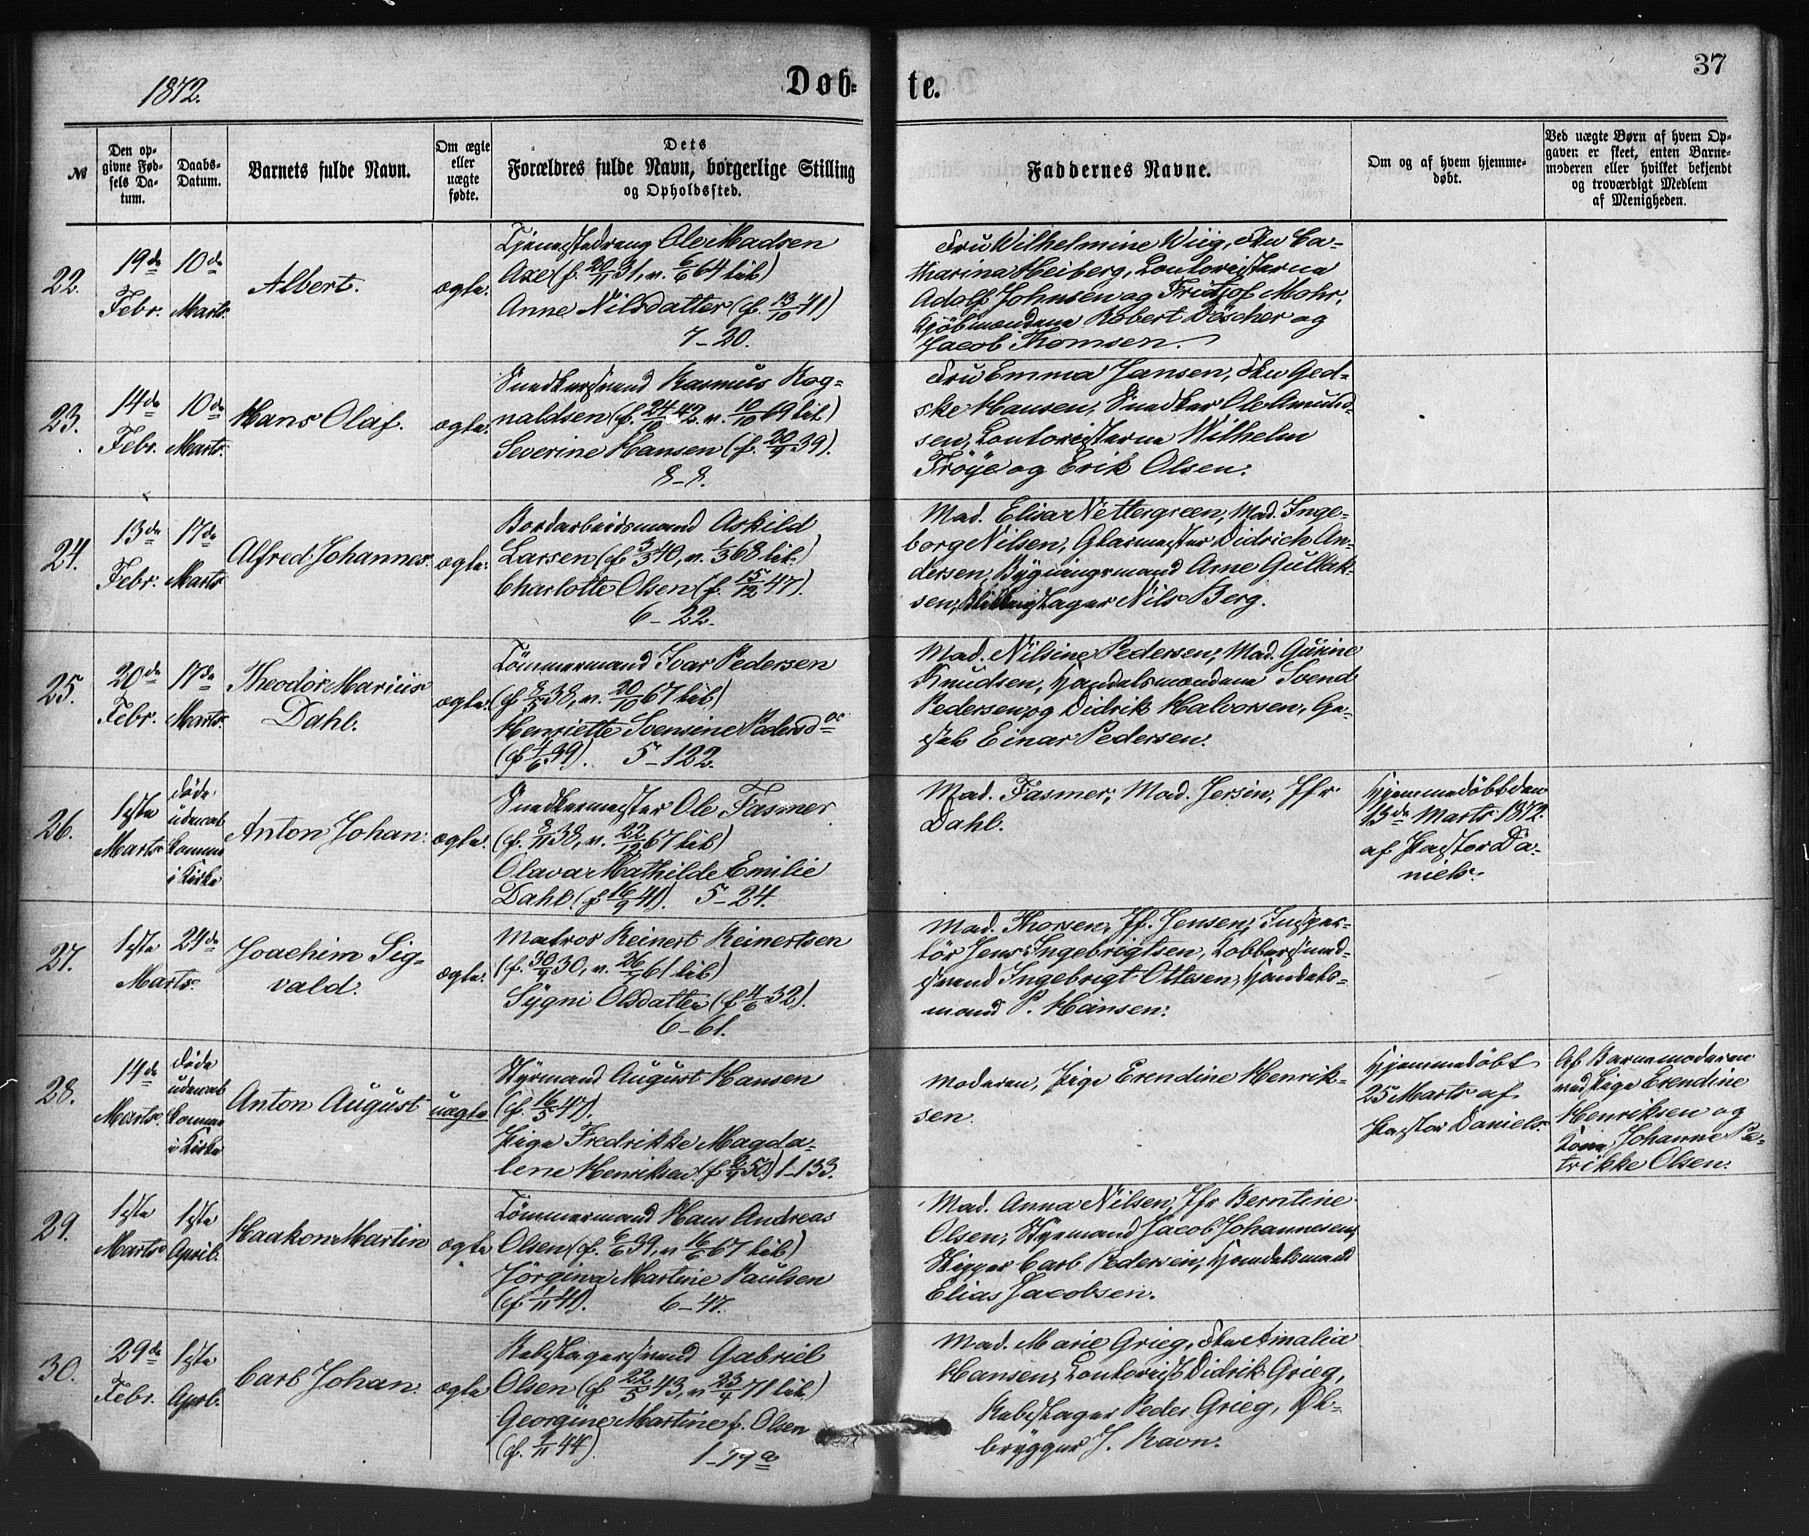 1872.
Døb-
te.
37
№
Den op-
givne Fød-
sels Da-
tum.
Daabs-
Datum.
Barnets fulde Navn.
Om ægte
eller
uægte
fødte.
Dets
Forældres fulde Navn, borgerlige Stilling
og Opholdssted.
Faddernes Navne.
Om og af hvem hjemme-
døbt.
Ved uægte Børn af hvem Op-
gaven er skeet, enten Barne-
moderen eller hvilket bekjendt
og troværdigt Medlem
af Menigheden.
22.
19de
Febr.
10de
Marts.
Albert.
ægte.
Tjenestedreng Ole Madsen
Axe (f. 20/11 31, v. 6/6 64 lib)
Anne Nilsdatter (f. 13/10 41)
7-20.
Fru Wilhelmine Wiig, Fru Ca-
tharina Heiberg, Contoristerne
Adolf Johnsen og Fridtjof Mohr,
Kjøbmændene Robert Döscher og
Jacob Thomsen.
23.
14de
Febr.
10de
Marts.
Hans Olaf.
ægte.
Snedkersvend Rasmus Rog-
naldsen (f. 24/10 42. v. 10/10 69 lib)
Severine Hansen (f. 20/9 39).
8-8.
Fru Emma Jansen, Fru Ged-
ske Hansen, Snedker Ole Amund-
sen, Contoristerne Wilhelm
Frøye og Erik Olsen.
24.
13de
Febr.
17de
Marts
Alfred Johannes.
ægte.
Bordarbeidsmand Askild
Larsen (f. 3/3 40, v. 1/3 68 lib.)
Charlotte Olsen (f. 15/12 47).
6-22.
Mad. Elisa Nettergreen, Mad. Inge-
borg Nilsen, Glarmester Didrich An-
dersen, Bygningsmand Arne Gullak-
sen, Nils Berg.
25.
20de
Febr.
17de
Marts.
Theodor Marius
Dahl.
ægte.
Tømmermand Ivar Pedersen
(f. 7/5 38, v. 20/10 67 lib)
Henriette Svensine Pedersd
(f 4/6 39). 5-122.
Mad. Nilsine Pedersen, Mad. Gurine
Knudsen, Handelsmændene Svend
Pedersen og Didrik Halvorsen, Ga-
Einar Pedersen.
26.
1ste
Marts.
døde
uden at
komme
i Kirke
Anton Johan.
ægte.
Snedkermester Ole Fasmer
(f. 8/11 38, v. 22/12 67 lib)
Olava Mathilde Emilie
Dahl (f 16/9 41). 5-24.
Mad. Fasmer, Mad. Jersin, Jfr
Dahl.
Hjemmedøbt den
13de Marts 1872.
af Pastor Da-
niels.
27.
1ste
Marts.
24de
Joachim Sig-
vald.
ægte.
Matros Reinert Reinertsen
(f. 30/9 30, v. 26/5 61 lib)
Sygni Olsdatter (f 4/6 32).
6-61.
Mad. Thorsen, Jf. Jensen, Inspec-
tör Jens Ingebrigtsen, Kobbersmed-
svend Ingebrigt Ottesen, Handels-
mand P. Hansen.
28.
14de
Marts.
døde
uden at
komme
i Kirke
Anton August
uægte
Styrmand August Hansen
(f. 16/5 47).
Pige Fredrikke Magda-
lene Henriksen (f 8/9 50) 1-133.
Moderen, Pige Erendine Henrik-
sen.
Hjemmedøbt
25 Marts af
Pastor Daniels.
Af Barnemoderen
med Pige Erendine
Henriksen og
Kone Johanne Pe-
trikke Olsen.
29.
1ste
Marts.
1ste
April.
Haakon Martin
ægte
Tømmermand Hans Andreas
Olsen (f. 6/6 39, v 16/6 67 lib)
Jörgina Martine Paulsen
(f. 1/11 40). 6-47.
Mad. Anna Nilsen, Jfr Berntine
Olsen, Styrmand Jacob Johannesen,
Rigger Carl Pedersen, Handelsmand
Elias Jacobsen.
30.
29de
Febr.
1ste
Aprl.
Carl Johan.
ægte
Rebslagersvend Gabriel
Olsen (f 22/5 43, v 23/4 71 lib.)
Georgine Martine f. Olsen
(f. 9/11 44). 1-19a
Mad. Marie Grieg, Fru Amalie
Hansen, Contorist Didrik Grieg,
Rebslager Peder Grieg, Øl-
brygger J. Ravn.